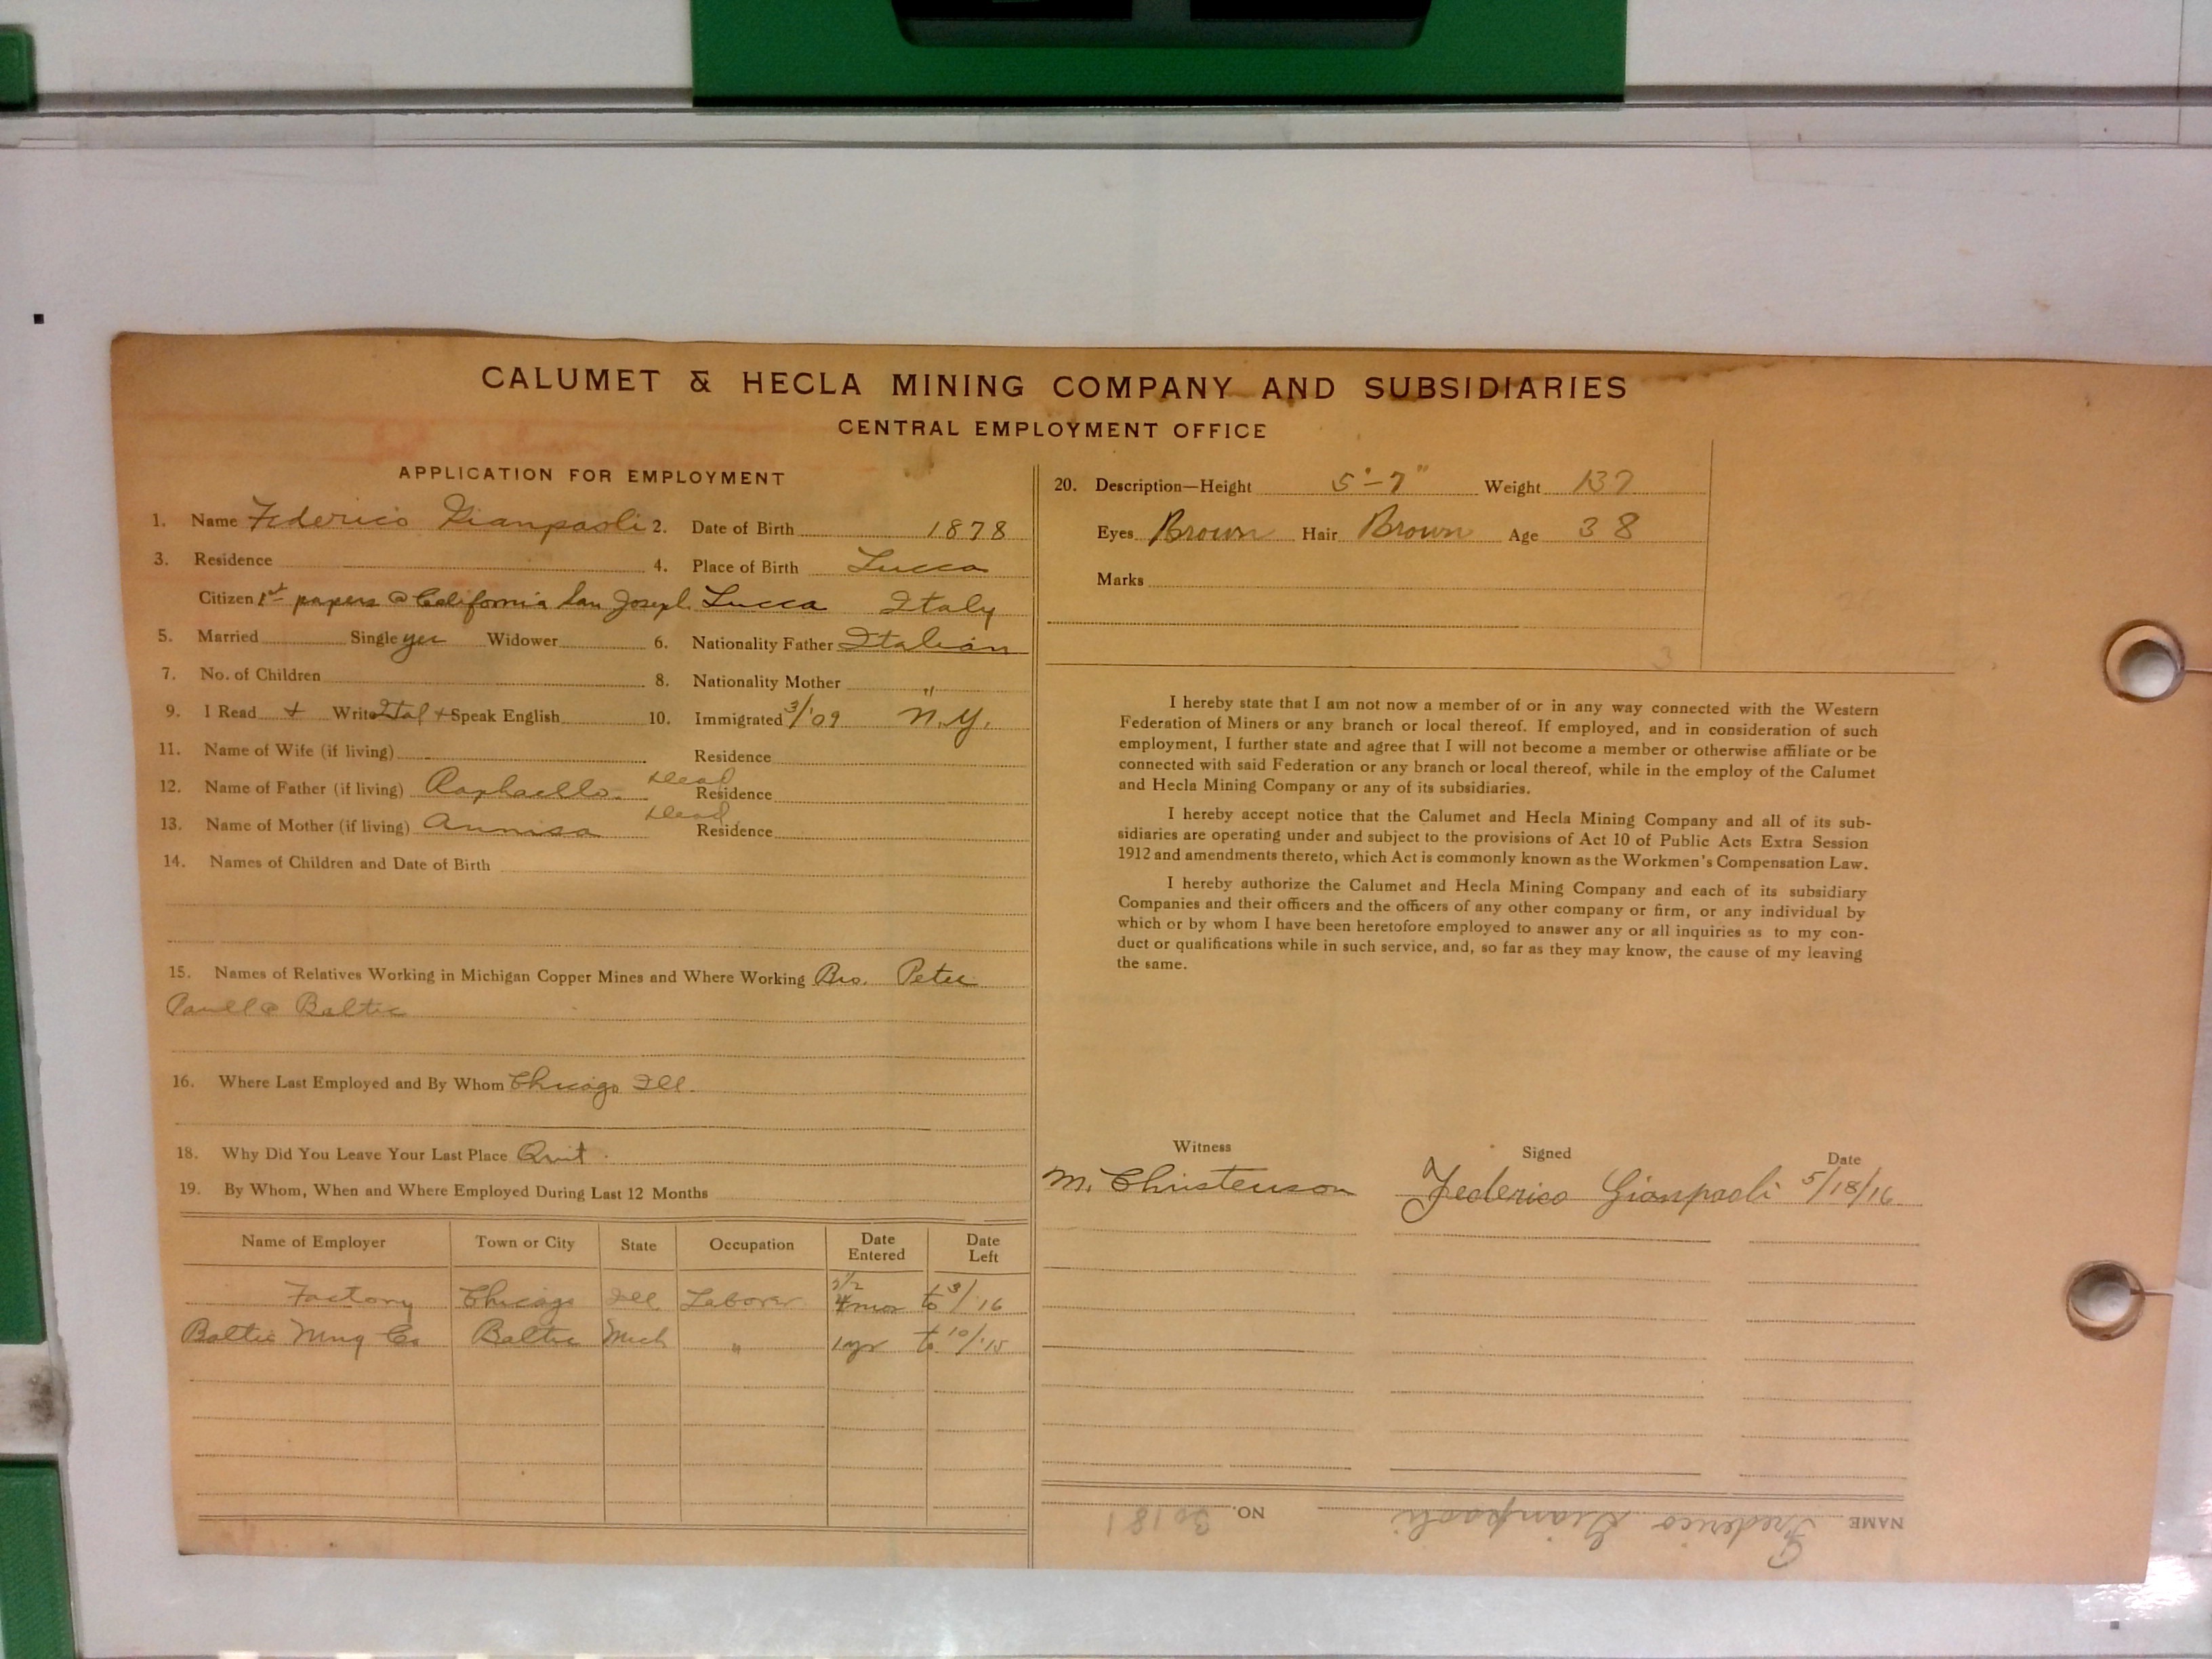 CALUMET & HECLA MINING COMPANY AND SUBSIDIARIES
CENTRAL EMPLOYMENT OFFICE
APPLICATION FOR EMPLOYMENT
1. Name Federico Gianpaoli 2. Date of Birth 1878
3. Residence 4. Place of Birth Lucca
Citizen 1st papers @ California San Joseph Lucca Italy
5. Married Single yes Widower 6. Nationality Father Italian
7. No. of Children 8. Nationality Mother "
9. I Read + Write Ital + Speak English 10. Immigrated 3/'09 N.Y.
11. Name of Wife (if living) Residence
12. Name of Father (if living) Raphaello Dead Residence
13. Name of Mother (if living) Dead Residence
14. Names of Children and Date of Birth
15. Names of Relatives Working in Michigan Copper Mines and Where Working Bro. Peter
@ Baltic
16. Where Last Employed and By Whom Chicago Ill.
18. Why Did You Leave Your Last Place Quit
19. By Whom, When and Where Employed During Last 12 Months
Name of Employer Town or City State Occupation Date Entered Date Left
Factory Chicago Ill. Laborer mos to 3/'16
Baltic Mng Co Baltic Mich " 1 yr to 10/'15
20. Description—Height 5'-7" Weight 137
Eyes Brown Hair Brown Age 38
Marks
I hereby state that I am not now a member of or in any way connected with the Western
Federation of Miners or any branch or local thereof. If employed, and in consideration of such
employment, I further state and agree that I will not become a member or otherwise affiliate or be
connected with said Federation or any branch or local thereof, while in the employ of the Calumet
and Hecla Mining Company or any of its subsidiaries.
I hereby accept notice that the Calumet and Hecla Mining Company and all of its sub-
sidiaries are operating under and subject to the provisions of Act 10 of Public Acts Extra Session
1912 and amendments thereto, which Act is commonly known as the Workmen's Compensation Law.
I hereby authorize the Calumet and Hecla Mining Company and each of its subsidiary
Companies and their officers and the officers of any other company or firm, or any individual by
which or by whom I have been heretofore employed to answer any or all inquiries as to my con-
duct or qualifications while in such service, and, so far as they may know, the cause of my leaving
the same.
Witness Signed Date
M. Christenson Federico Gianpaoli 5/18/16
NAME Frederico Gianpaoli NO. 30181